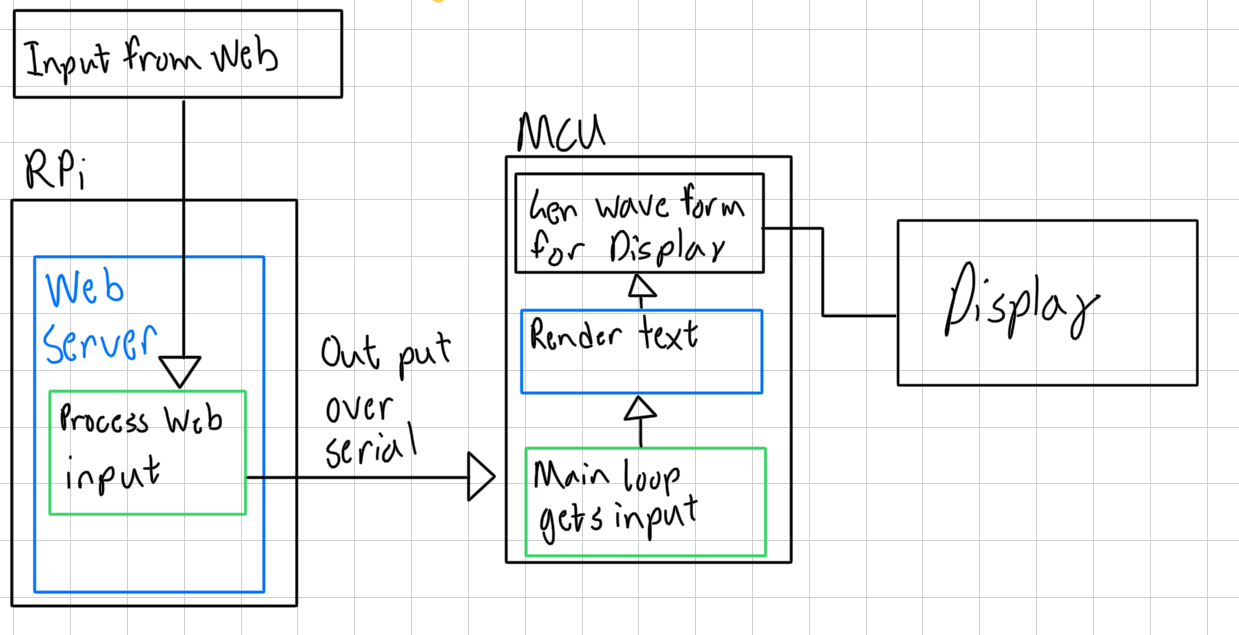 Input from Web
RPi
Web
Server
Process Web
input
Out put
over
serial
MCU
Gen wave form
for Display
Render text
Main loop
gets input
Display